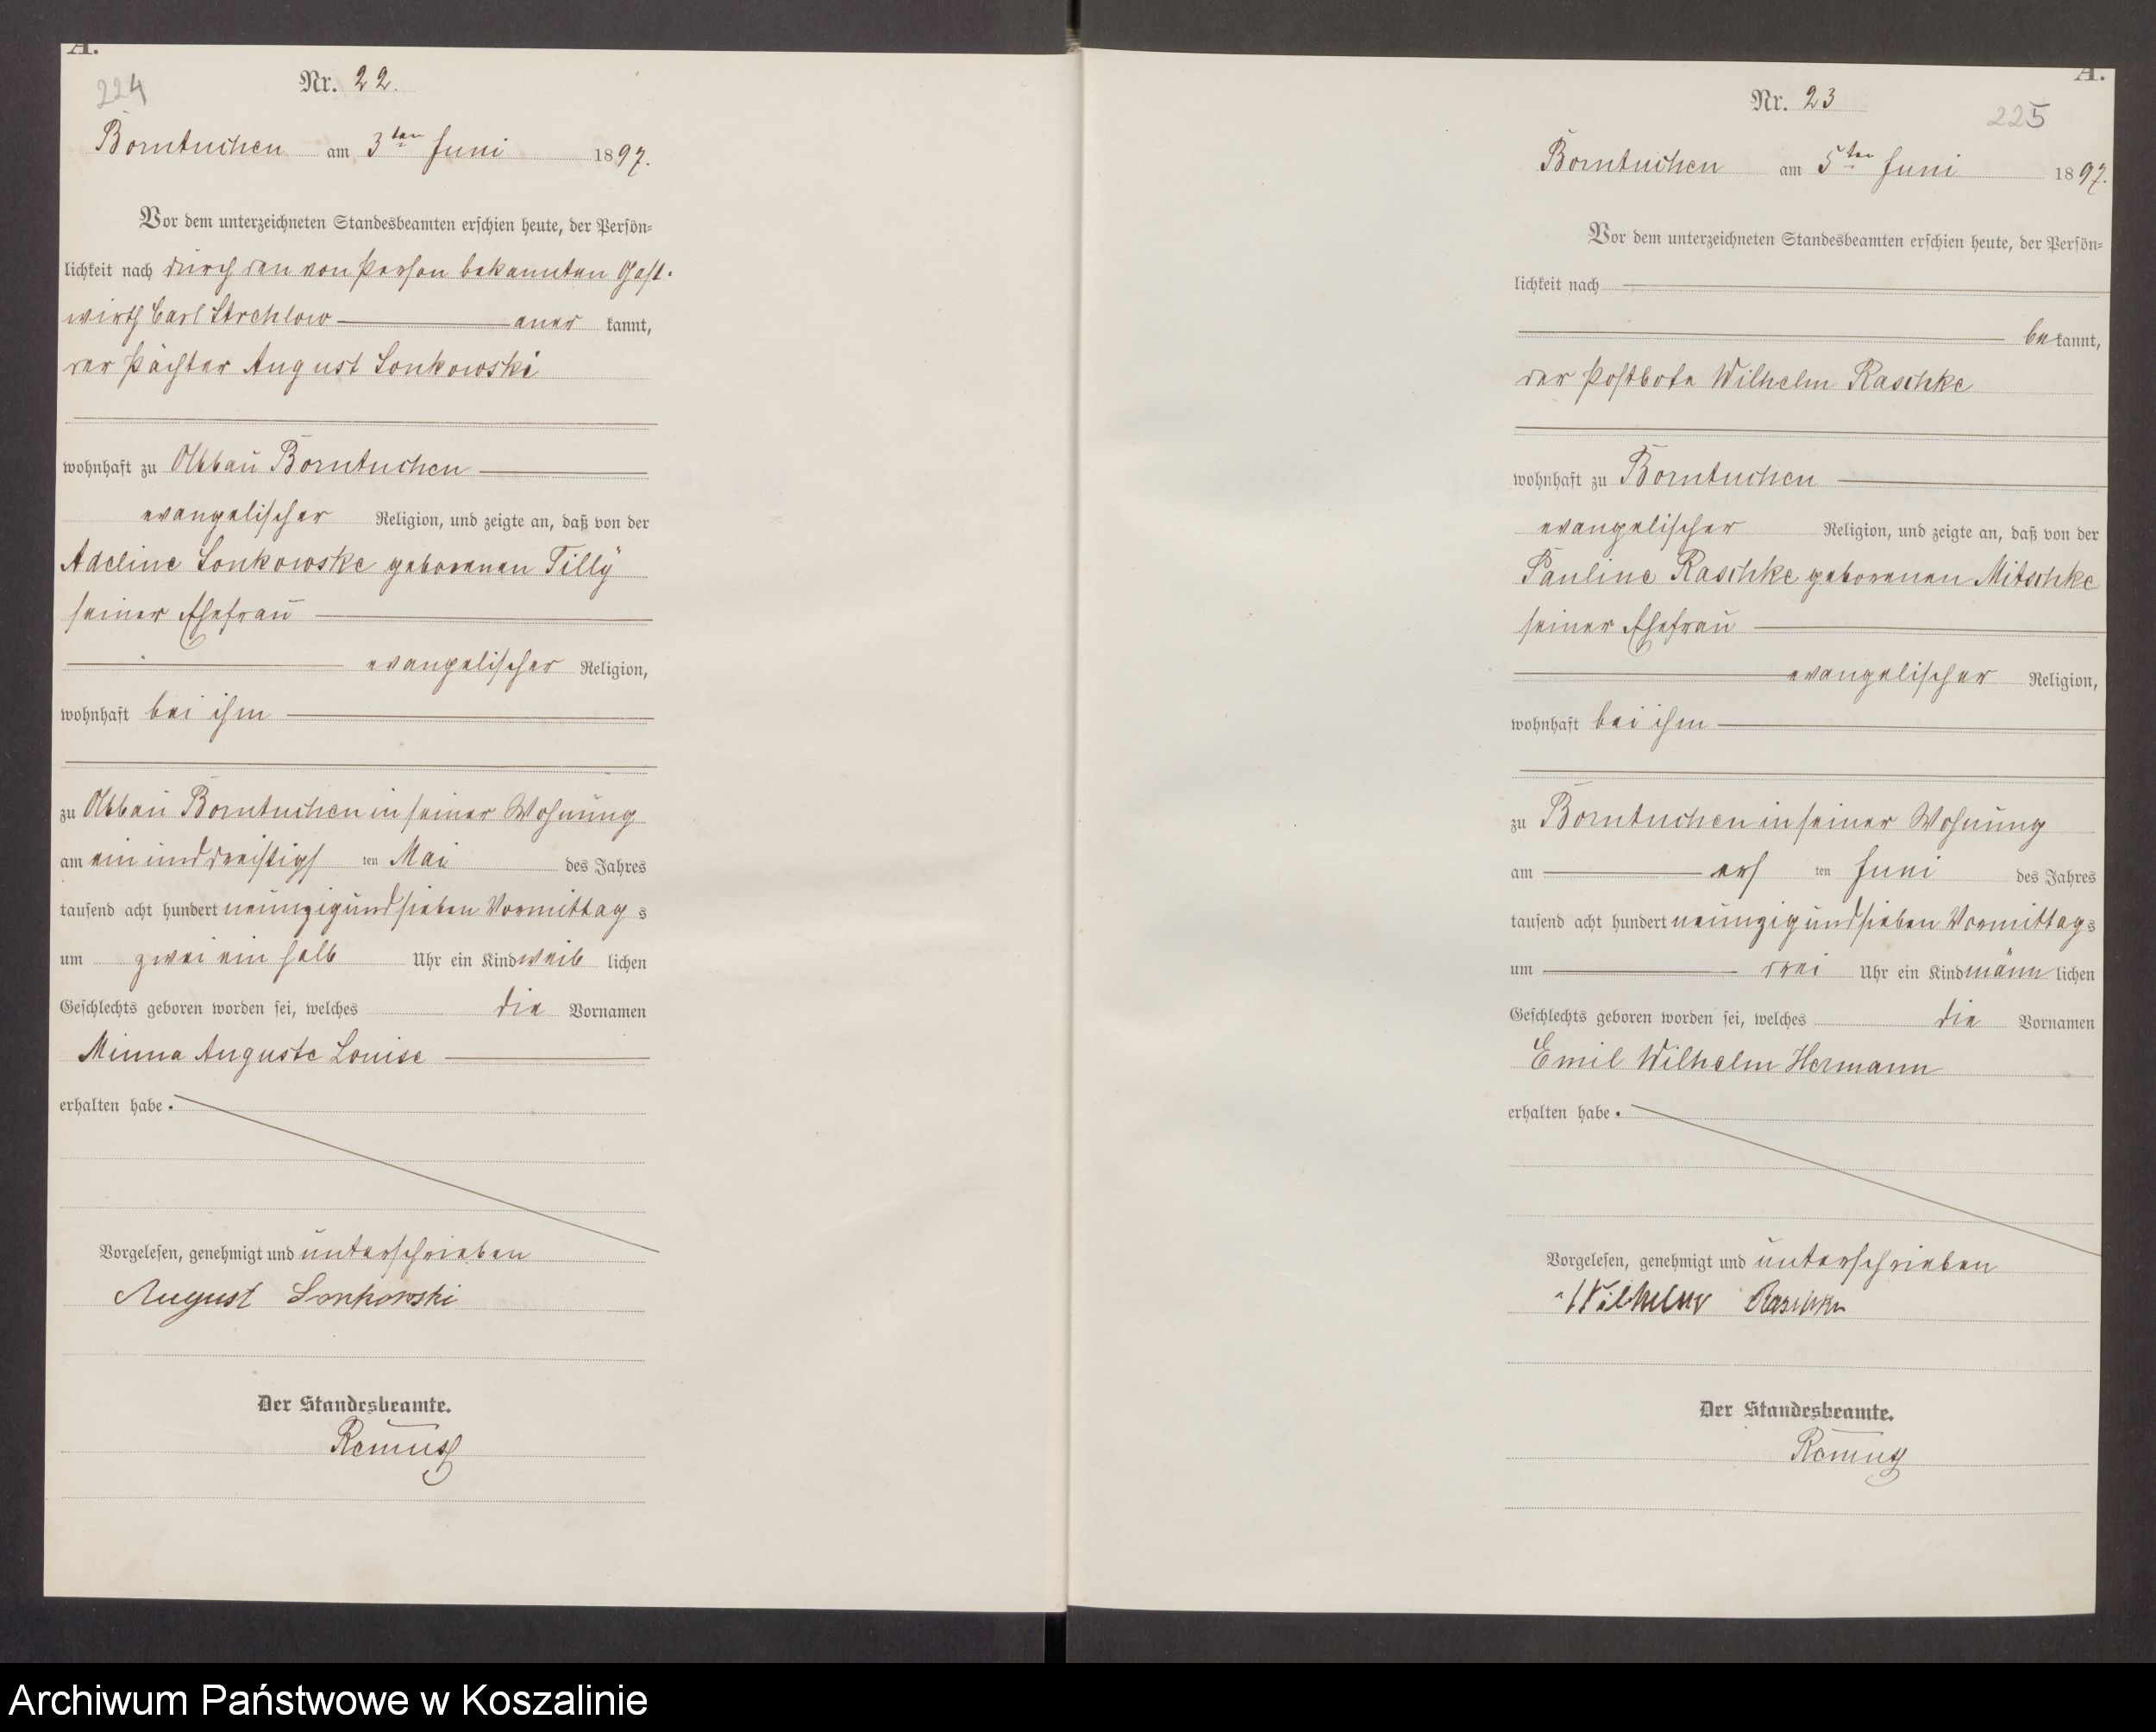 A.
224
Nr. 22.
Borntuchen am 3ten Juni 1897.
Vor dem unterzeichneten Standesbeamten erschien heute, der Persön-
lichkeit nach durch den von Person bekannten Gast-
wirth Carl Strehlow aner kannt,
der Pächter August Lonkowski
wohnhaft zu Abbau Borntuchen
evangelischer Religion, und zeigte an, daß von der
Adeline Lonkowske geborenen Tilly
seiner Ehefrau
evangelischer Religion,
wohnhaft bei ihm
zu Abbau Borntuchen in seiner Wohnung
am ein und dreißigs ten Mai des Jahres
tausend acht hundert neunzig und sieben Vormittag s
um zwei ein halb Uhr ein Kind weib lichen
Geschlechts geboren worden sei, welches die Vornamen
Minna Auguste Louise
erhalten habe.
Vorgelesen, genehmigt und unterschrieben
August Lonkowski
Der Standesbeamte.
Remus
A.
Nr. 23
225
Borntuchen am 5ten Juni 1897.
Vor dem unterzeichneten Standesbeamten erschien heute, der Persön-
lichkeit nach
be kannt,
der Postbote Wilhelm Raschke
wohnhaft zu Borntuchen
evangelischer Religion, und zeigte an, daß von der
Pauline Raschke geborenen Mitschke
seiner Ehefrau
evangelischer Religion,
wohnhaft bei ihm
zu Borntuchen in seiner Wohnung
am ers ten Juni des Jahres
tausend acht hundert neunzig und sieben Vormittag s
um drei Uhr ein Kind männ lichen
Geschlechts geboren worden sei, welches die Vornamen
Emil Wilhelm Hermann
erhalten habe.
Vorgelesen, genehmigt und unterschrieben
Wilhelm Raschke
Der Standesbeamte.
Remus
Archiwum Państwowe w Koszalinie